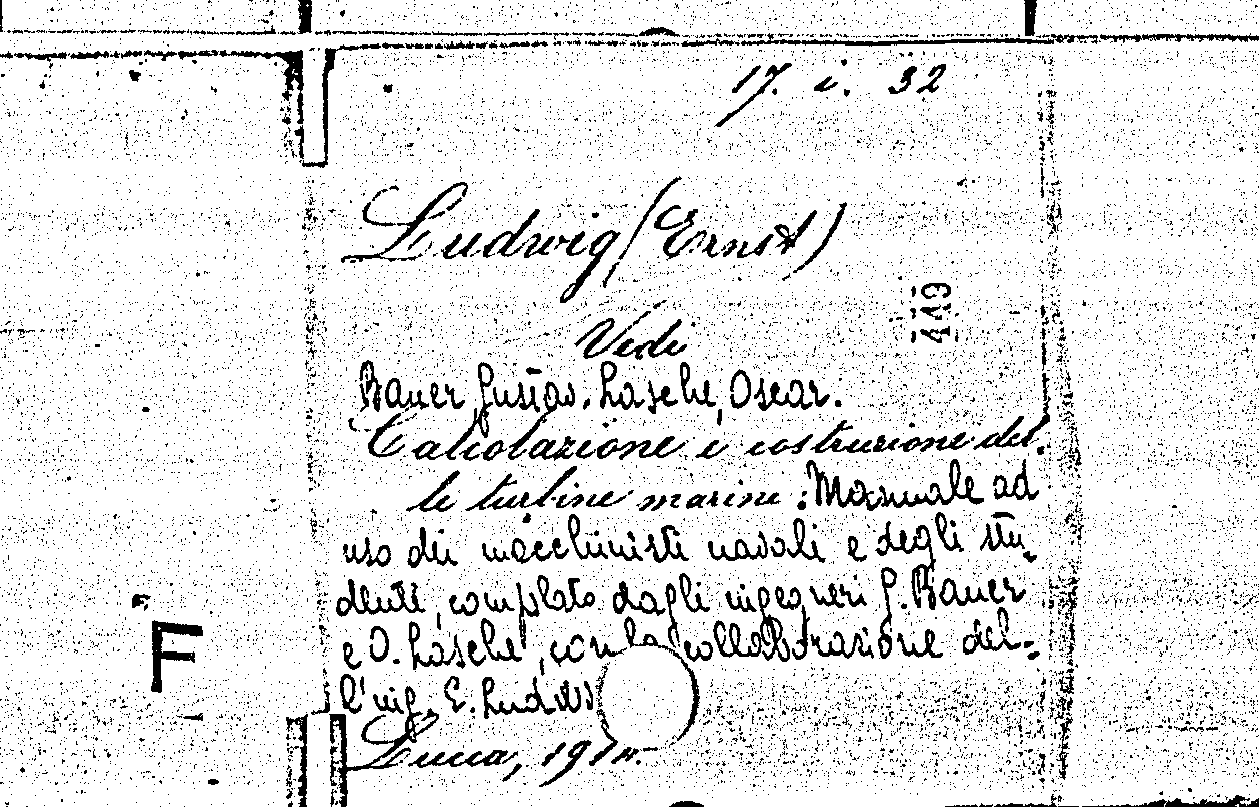 17. i. 32
Ludwig (Ernst)
449
Vedi
Bauer, Gustav. Lasche, Oscar.
Calcolazione e costruzione del-
le turbine marine: Manuale ad
uso dei macchinisti navali e degli stu-
denti, compilato dagli ingegneri G. Bauer
e O. Lasche, con la collaborazione del-
l'ing. E. Ludwi
F
Lucca, 191